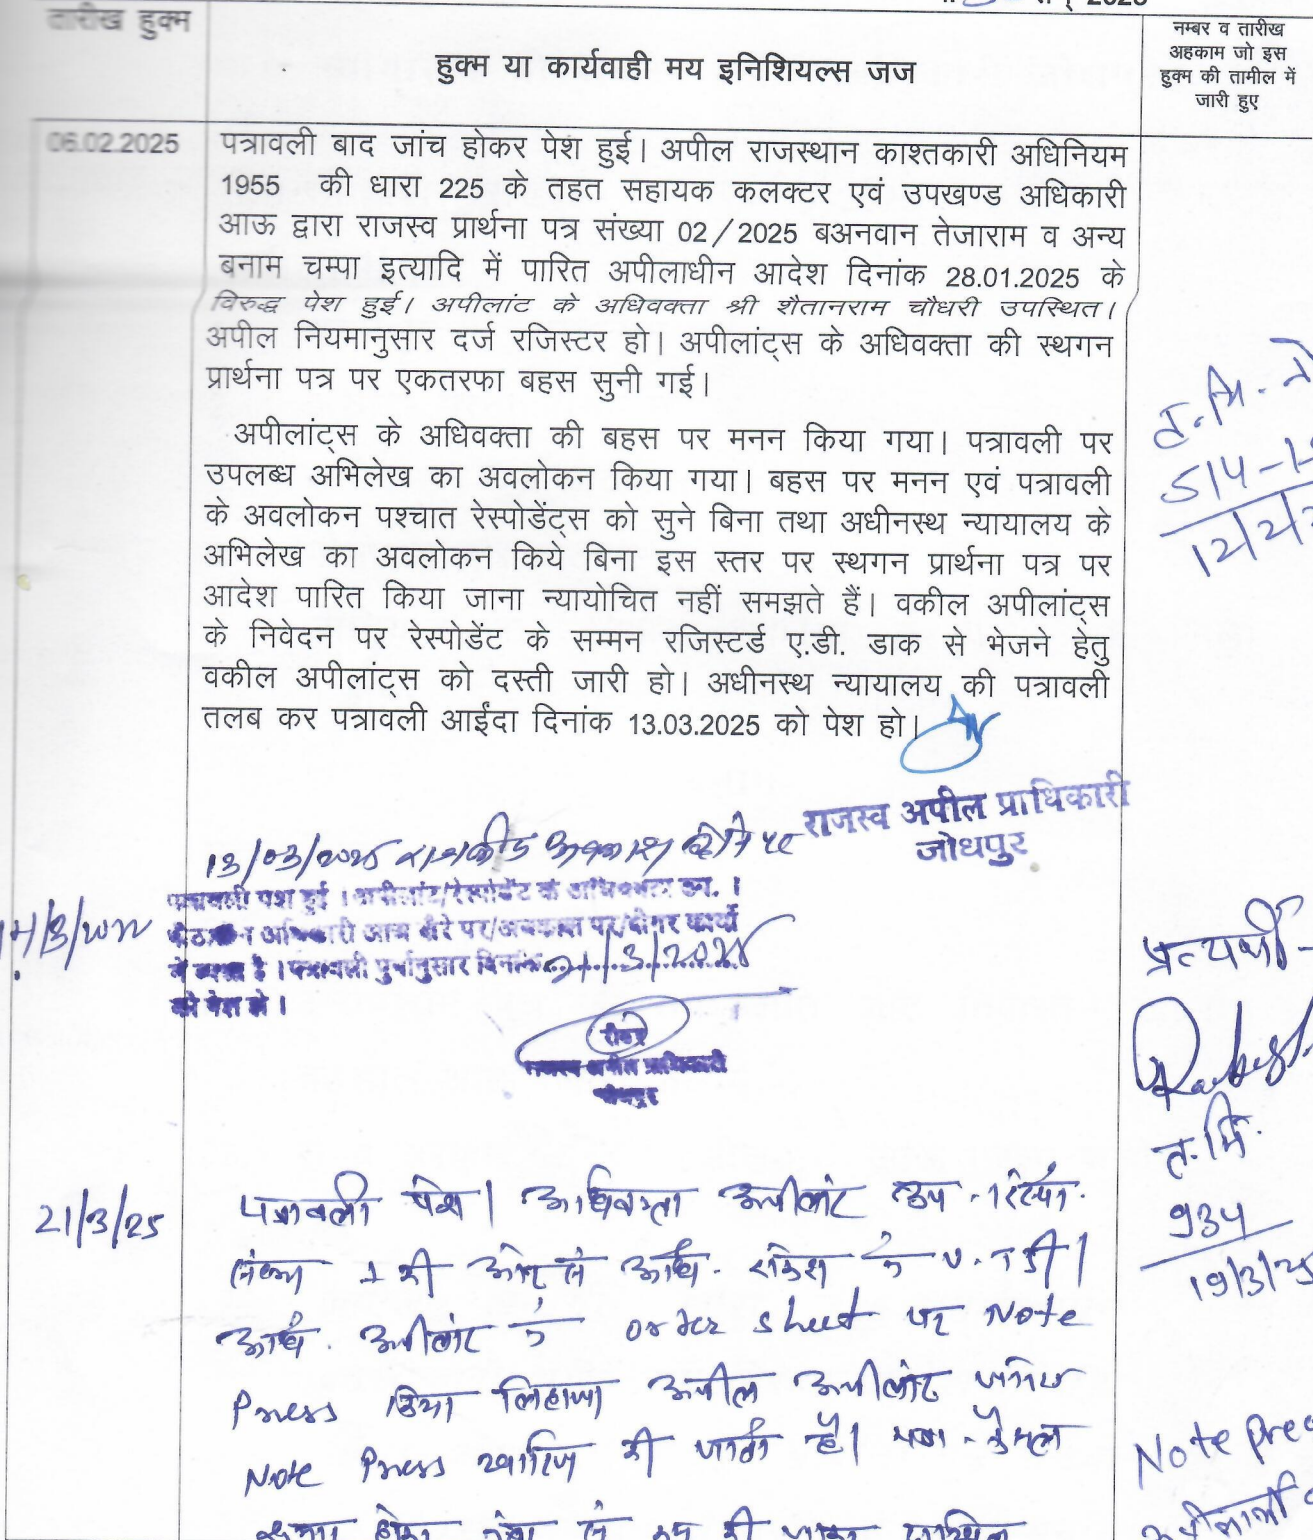 सन् 2025
तारीख हुक्म
हुक्म या कार्यवाही मय इनिशियल्स जज
नम्बर व तारीख
अहकाम जो इस
हुक्म की तामील में
जारी हुए
06.02.2025
पत्रावली बाद जांच होकर पेश हुई। अपील राजस्थान काश्तकारी अधिनियम
1955 की धारा 225 के तहत सहायक कलक्टर एवं उपखण्ड अधिकारी
आऊ द्वारा राजस्व प्रार्थना पत्र संख्या 02/2025 बअनवान तेजाराम व अन्य
बनाम चम्पा इत्यादि में पारित अपीलाधीन आदेश दिनांक 28.01.2025 के
विरुद्ध पेश हुई। अपीलांट के अधिवक्ता श्री शैतानराम चौधरी उपस्थित।
अपील नियमानुसार दर्ज रजिस्टर हो। अपीलांट्स के अधिवक्ता की स्थगन
प्रार्थना पत्र पर एकतरफा बहस सुनी गई।
अपीलांट्स के अधिवक्ता की बहस पर मनन किया गया। पत्रावली पर
उपलब्ध अभिलेख का अवलोकन किया गया। बहस पर मनन एवं पत्रावली
के अवलोकन पश्चात रेस्पोडेंट्स को सुने बिना तथा अधीनस्थ न्यायालय के
अभिलेख का अवलोकन किये बिना इस स्तर पर स्थगन प्रार्थना पत्र पर
आदेश पारित किया जाना न्यायोचित नहीं समझते हैं। वकील अपीलांट्स
के निवेदन पर रेस्पोडेंट के सम्मन रजिस्टर्ड ए.डी. डाक से भेजने हेतु
वकील अपीलांट्स को दस्ती जारी हो। अधीनस्थ न्यायालय की पत्रावली
तलब कर पत्रावली आईंदा दिनांक 13.03.2025 को पेश हो।
514-1
12/2/
राजस्व अपील प्राधिकारी
जोधपुर
13/03/2025 राजकीय अवकाश होने पर
पत्रावली पेश हुई। अपीलांट/रेस्पोडेंट के अधिवक्ता उप.।
पीठासीन अधिकारी आज दौरे पर/अवकाश पर/दीगर कार्यो
में व्यस्त है। पत्रावली पुर्वानुसार दिनांक 21/3/2025
को पेश हो।
रीडर
राजस्व अपील प्राधिकारी
जोधपुर
प्रत्यर्थी-
त.मि.
934
19/3/25
21/3/25
पत्रावली पेश। अधिवक्ता अपीलांट उप. रेस्पो.
संख्या 1 की ओर से अधि. राकेश
अधि. अपीलांट ने order sheet पर Note
Press किया लिहाजा अपील अपीलांट जरिये
Note Press खारिज की जाती है। पत्रा. फैसल
Note pre